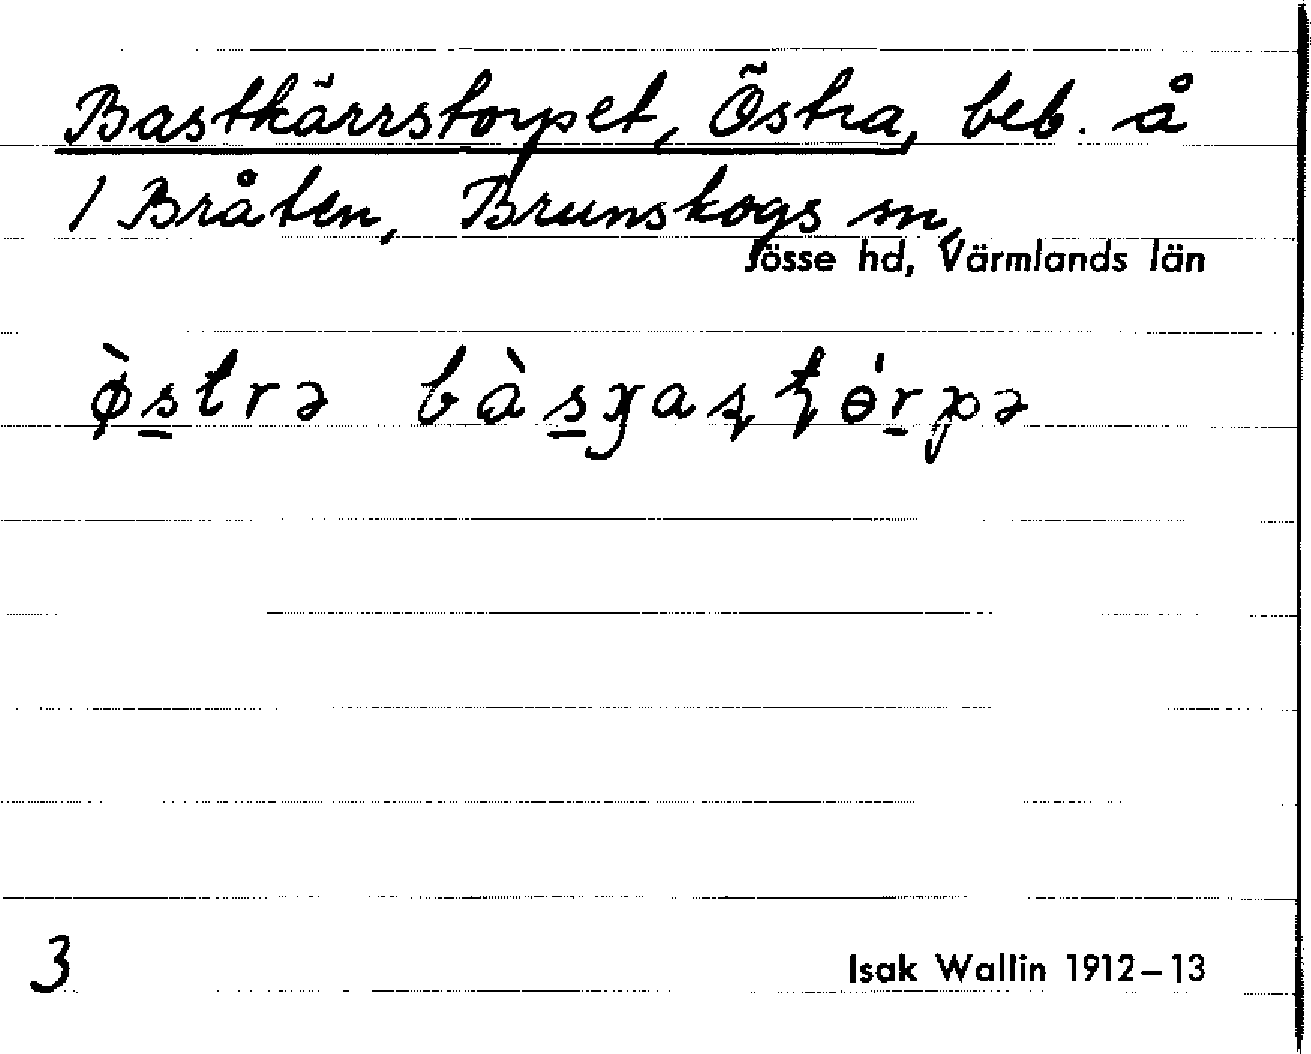 Bastkärrstorpet, Östra, beb. å
1 Bråten, Brunskogs sn,
Jösse hd, Värmlands län
ø̀s̲trə bàs̲ɣaʂʈɵ́r̲pə
3
Isak Wallin 1912–13